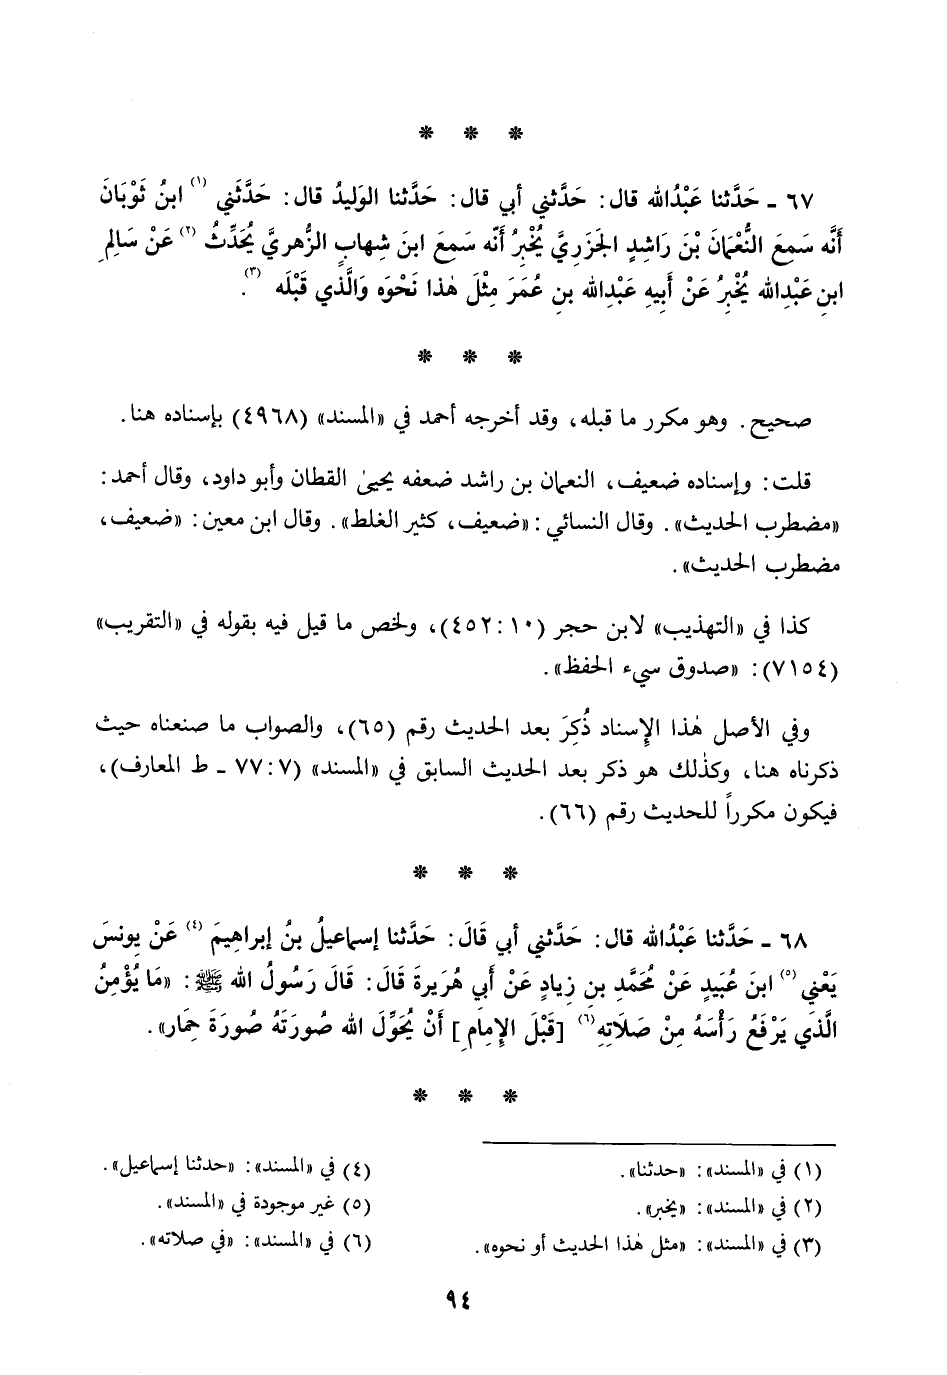 * * *
٦٧ - حَدَّثنا عَبْدُالله قال: حَدَّثنِي أبي قال: حَدَّثنا الوَليدُ قال: حَدَّثَني (١) ابنُ ثَوْبَانَ
أَنَّه سَمِعَ النُّعْمَانَ بْنَ رَاشِدٍ الجَزرِيَّ يُخْبِرُ أنّه سَمِعَ ابنَ شِهابٍ الزُّهريَّ يُحَدِّثُ (٢) عَنْ سَالِمِ
ابنِ عَبْدِالله يُخْبِرُ عَنْ أَبيهِ عَبْدِالله بنِ عُمَرَ مِثْلَ هٰذا نَحْوَه وَالَّذي قَبْلَه (٣).
* * *
صحيح. وهو مكرر ما قبله، وقد أخرجه أحمد في «المسند» (٤٩٦٨) بإسناده هنا.
قلت: وإسناده ضعيف، النعمان بن راشد ضعفه يحيىٰ القطان وأبو داود، وقال أحمد:
«مضطرب الحديث». وقال النسائي: «ضعيف، كثير الغلط». وقال ابن معين: «ضعيف،
مضطرب الحديث».
كذا في «التهذيب» لابن حجر (٤٥٢:١٠)، ولخص ما قيل فيه بقوله في «التقريب»
(٧١٥٤): «صدوق سيء الحفظ».
وفي الأصل هٰذا الإسناد ذُكِرَ بعد الحديث رقم (٦٥)، والصواب ما صنعناه حيث
ذكرناه هنا، وكذٰلك هو ذكر بعد الحديث السابق في «المسند» (٧٧:٧ - ط المعارف)،
فيكون مكرراً للحديث رقم (٦٦).
* * *
٦٨ - حَدَّثنا عَبْدُالله قال: حَدَّثنِي أبي قَالَ: حَدَّثنا إسماعيلُ بنُ إبراهِيمَ (٤) عَنْ يونسَ
يَعْني (٥) ابنَ عُبَيدٍ عَنْ مُحَمَّدِ بنِ زِيادٍ عَنْ أَبي هُرَيرةَ قَالَ: قَالَ رَسُولُ الله ﷺ: «مَا يُؤْمِنُ
الَّذي يَرْفَعُ رَأْسَهُ مِنْ صَلَاتِهِ (٦) [قَبْلَ الإمَامِ] أَنْ يُحَوِّلَ الله صُورَتَهُ صُورَةَ حِمَار».
* * *
(١) في «المسند»: «حدثنا».
(٢) في «المسند»: «يخبر».
(٣) في «المسند»: «مثل هٰذا الحديث أو نحوه».
(٤) في «المسند»: «حدثنا إسماعيل».
(٥) غير موجودة في «المسند».
(٦) في «المسند»: «في صلاته».
٩٤